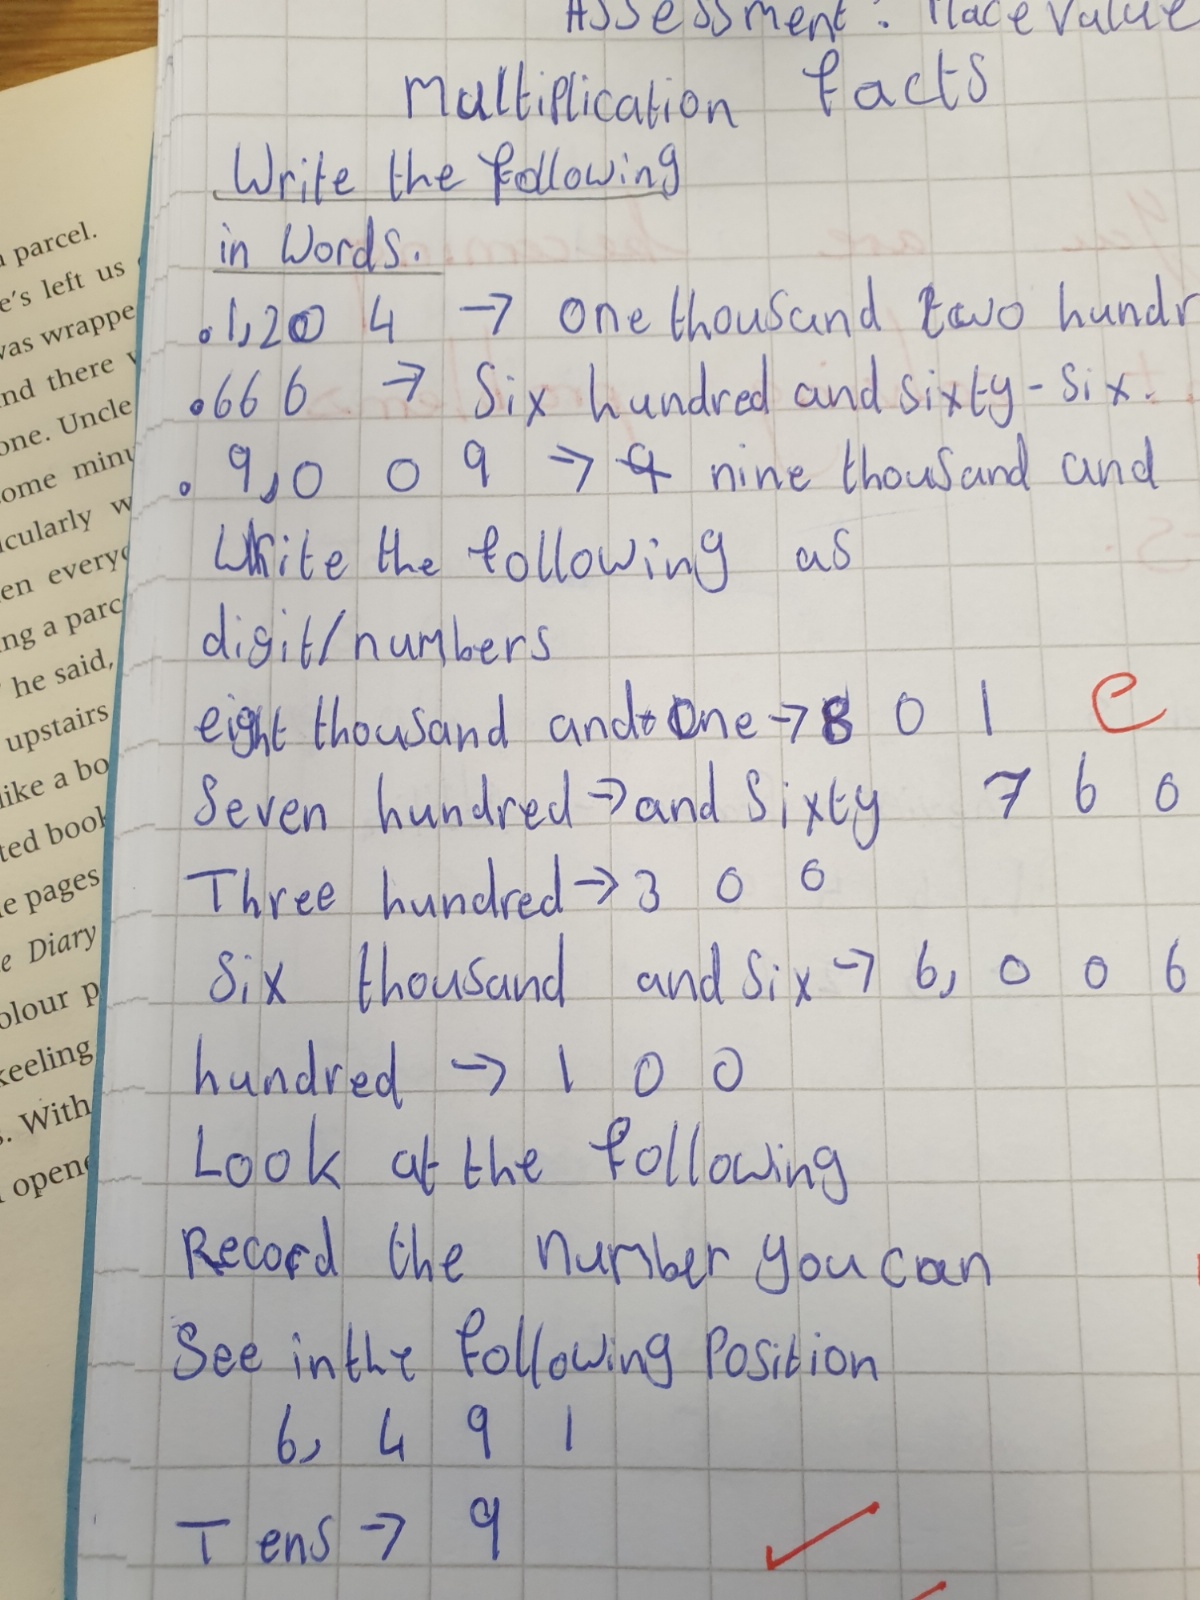 Assessment: Place Value
Multiplication facts
Write the following
in Words.
.1,204 → one thousand two hundr
.666 → Six hundred and sixty-six.
.9,009 → nine thousand and
Write the following as
digit/numbers
eight thousand and one → 801 C
Seven hundred → and Sixty 760
Three hundred → 300
Six thousand and Six → 6,006
hundred → 100
Look at the following
Record the number you can
See in the following Position
6,491
Tens → 9
parcel.
e's left us
was wrappe
nd there
one. Uncle
ome minu
icularly w
en every
ng a parc
he said,
upstairs
like a bo
ted book
e pages
e Diary
olour p
keeling
s. With
opene